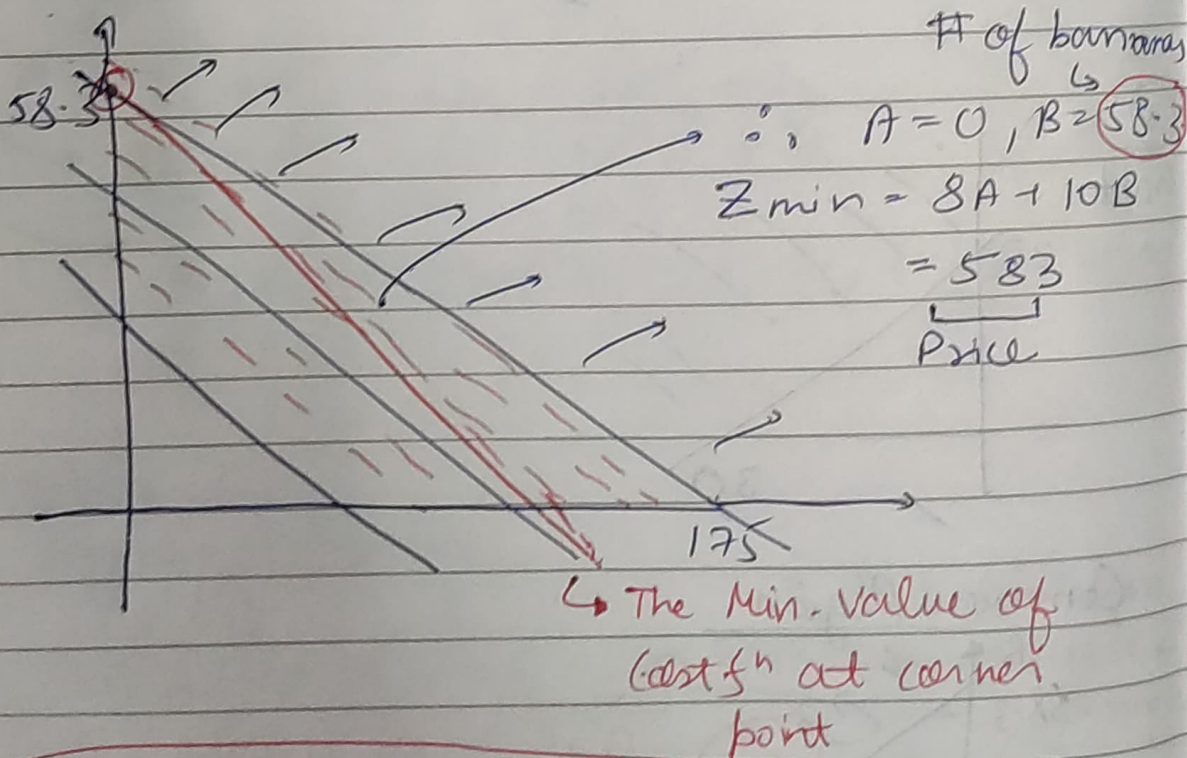 # of bananas
↳
58.3
∴ A = 0, B = 58.3
Z min = 8A + 10B
= 583
Price
175
↳ The Min. value of
Cost fⁿ at corner
point